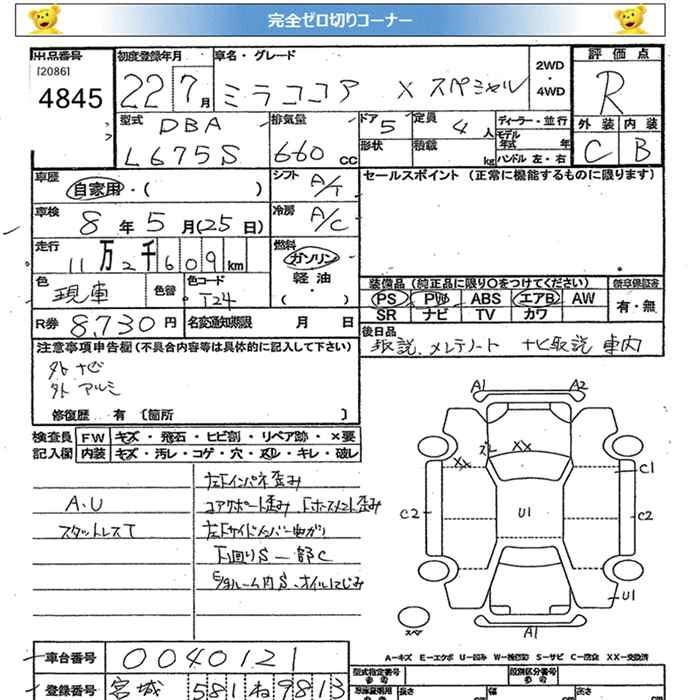 完全ゼロ切りコーナー
出品番号 初度登録年月 車名・グレード 2WD・4WD 評価点
[2086]
4845 22 7月 ミラココア X スペシャル R
型式 DBA 排気量 ドア 5 定員 4人 ディーラー・並行 外装 内装
L675S 660cc 形状 積載 kg モデル年式 年 ハンドル 左・右 C B
車歴 自家用・( ) シフト A/T セールスポイント(正常に機能するものに限ります)
車検 8年5月(25日) 冷房 A/C
走行 11万2千609km 燃料 ガソリン 軽油・( )
色 現車 色替 色コード T24
装備品(純正品に限り○をつけてください) 新車保証書
PS PW ABS エアB AW 有・無
SR ナビ TV カワ
R券 8,730円 名変通知期限 月 日
後日品
取説、メンテノート ナビ取説 車内
注意事項申告欄(不具合内容等は具体的に記入して下さい)
外 ナビ
外 アルミ
修復歴 有〔箇所 〕
検査員 FW キズ・飛石・ヒビ割・リペア跡・×要
記入欄 内装 キズ・汚レ・コゲ・穴・スレ・キレ・破レ
左下インパネ歪み
A.U コアサポート歪み
スタットレスT 左サイドメンバー曲がり
下廻りS 一部C
オイルにじみ
A1 A2
XX
XX C1
C2 U1 C2
U1
スペア A1
A=キズ E=エクボ U=凹み W=補修跡 S=サビ C=腐食 XX=交換済
車台番号 0040121
登録番号 宮城 581 ね 9813
型式指定番号 類別区分番号
長さ 幅 高さ